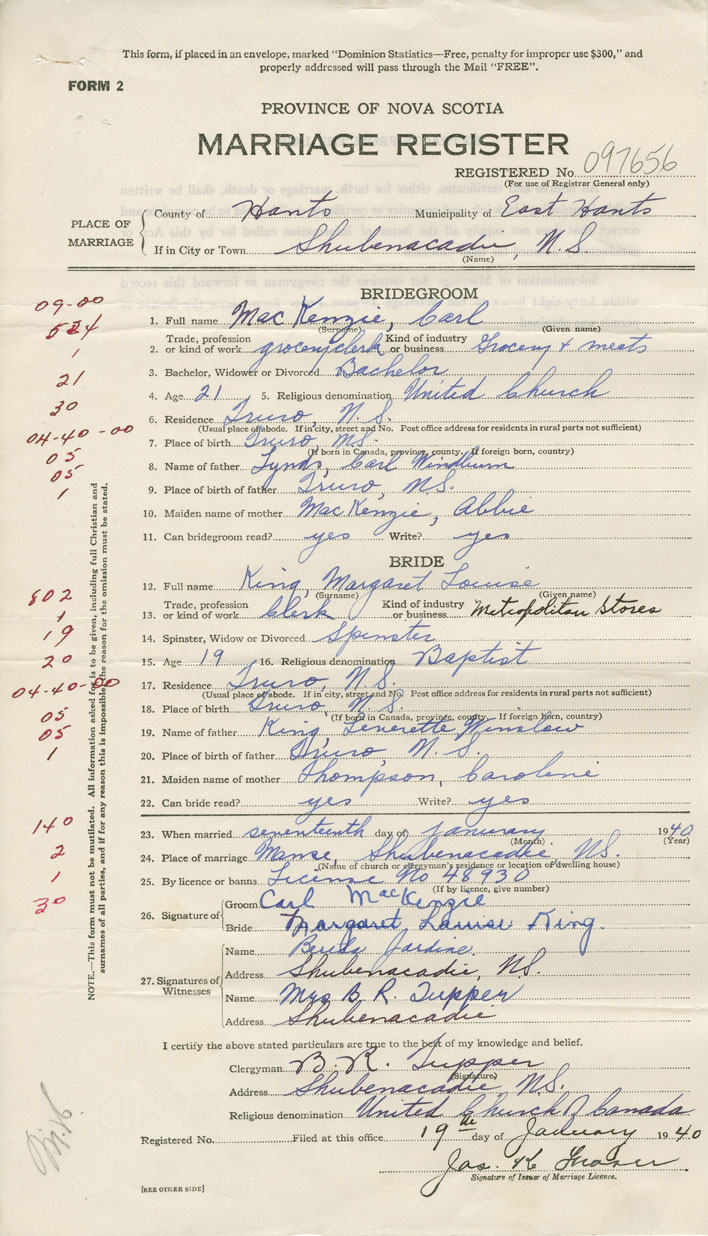 This form, if placed in an envelope, marked "Dominion Statistics—Free, penalty for improper use $300," and
properly addressed will pass through the Mail "FREE".
FORM 2
PROVINCE OF NOVA SCOTIA
MARRIAGE REGISTER
REGISTERED No. 097656
(For use of Registrar General only)
PLACE OF MARRIAGE
County of Hants Municipality of East Hants
If in City or Town Shubenacadie, N.S.
(Name)
BRIDEGROOM
09-00
1. Full name MacKenzie, Carl
(Surname) (Given name)
524
Trade, profession Kind of industry
2. or kind of work grocery clerk or business Grocery & meats
1
3. Bachelor, Widower or Divorced Bachelor
21
4. Age 21 5. Religious denomination United Church
30
6. Residence Truro, N.S.
(Usual place of abode. If in city, street and No. Post office address for residents in rural parts not sufficient)
04-40-00
7. Place of birth Truro, N.S.
(If born in Canada, province, county. If foreign born, country)
05
8. Name of father Lynds, Carl Windburn
05
9. Place of birth of father Truro, N.S.
1
10. Maiden name of mother MacKenzie, Abbie
11. Can bridegroom read? yes Write? yes
BRIDE
12. Full name King, Margaret Louise
(Surname) (Given name)
802
Trade, profession Kind of industry
13. or kind of work Clerk or business Metropolitan Stores
1
14. Spinster, Widow or Divorced Spinster
19
15. Age 19 16. Religious denomination Baptist
20
17. Residence Truro, N.S.
(Usual place of abode. If in city, street and No. Post office address for residents in rural parts not sufficient)
04-40-00
18. Place of birth Truro, N.S.
(If born in Canada, province, county. If foreign born, country)
05
19. Name of father King, Leverette Winslow
05
20. Place of birth of father Truro, N.S.
1
21. Maiden name of mother Thompson, Caroline
22. Can bride read? yes Write? yes
140
23. When married seventeenth day of January 1940
(Month) (Year)
2
24. Place of marriage Manse, Shubenacadie, N.S.
(Name of church or clergyman's residence or location of dwelling house)
1
25. By licence or banns License No 48930
(If by licence, give number)
30
26. Signature of
Groom Carl MacKenzie
Bride Margaret Louise King.
27. Signatures of Witnesses
Name Jardine.
Address Shubenacadie, N.S.
Name Mrs B. R. Tupper
Address Shubenacadie
NOTE.—This form must not be mutilated. All information asked for is to be given, including full Christian and
surnames of all parties, and if for any reason this is impossible, the reason for the omission must be stated.
I certify the above stated particulars are true to the best of my knowledge and belief.
Clergyman B. R. Tupper
(Signature)
Address Shubenacadie N.S.
Religious denomination United Church of Canada
Registered No. Filed at this office 19th day of January 1940
Jas. K
Signature of Issuer of Marriage Licence.
[SEE OTHER SIDE]